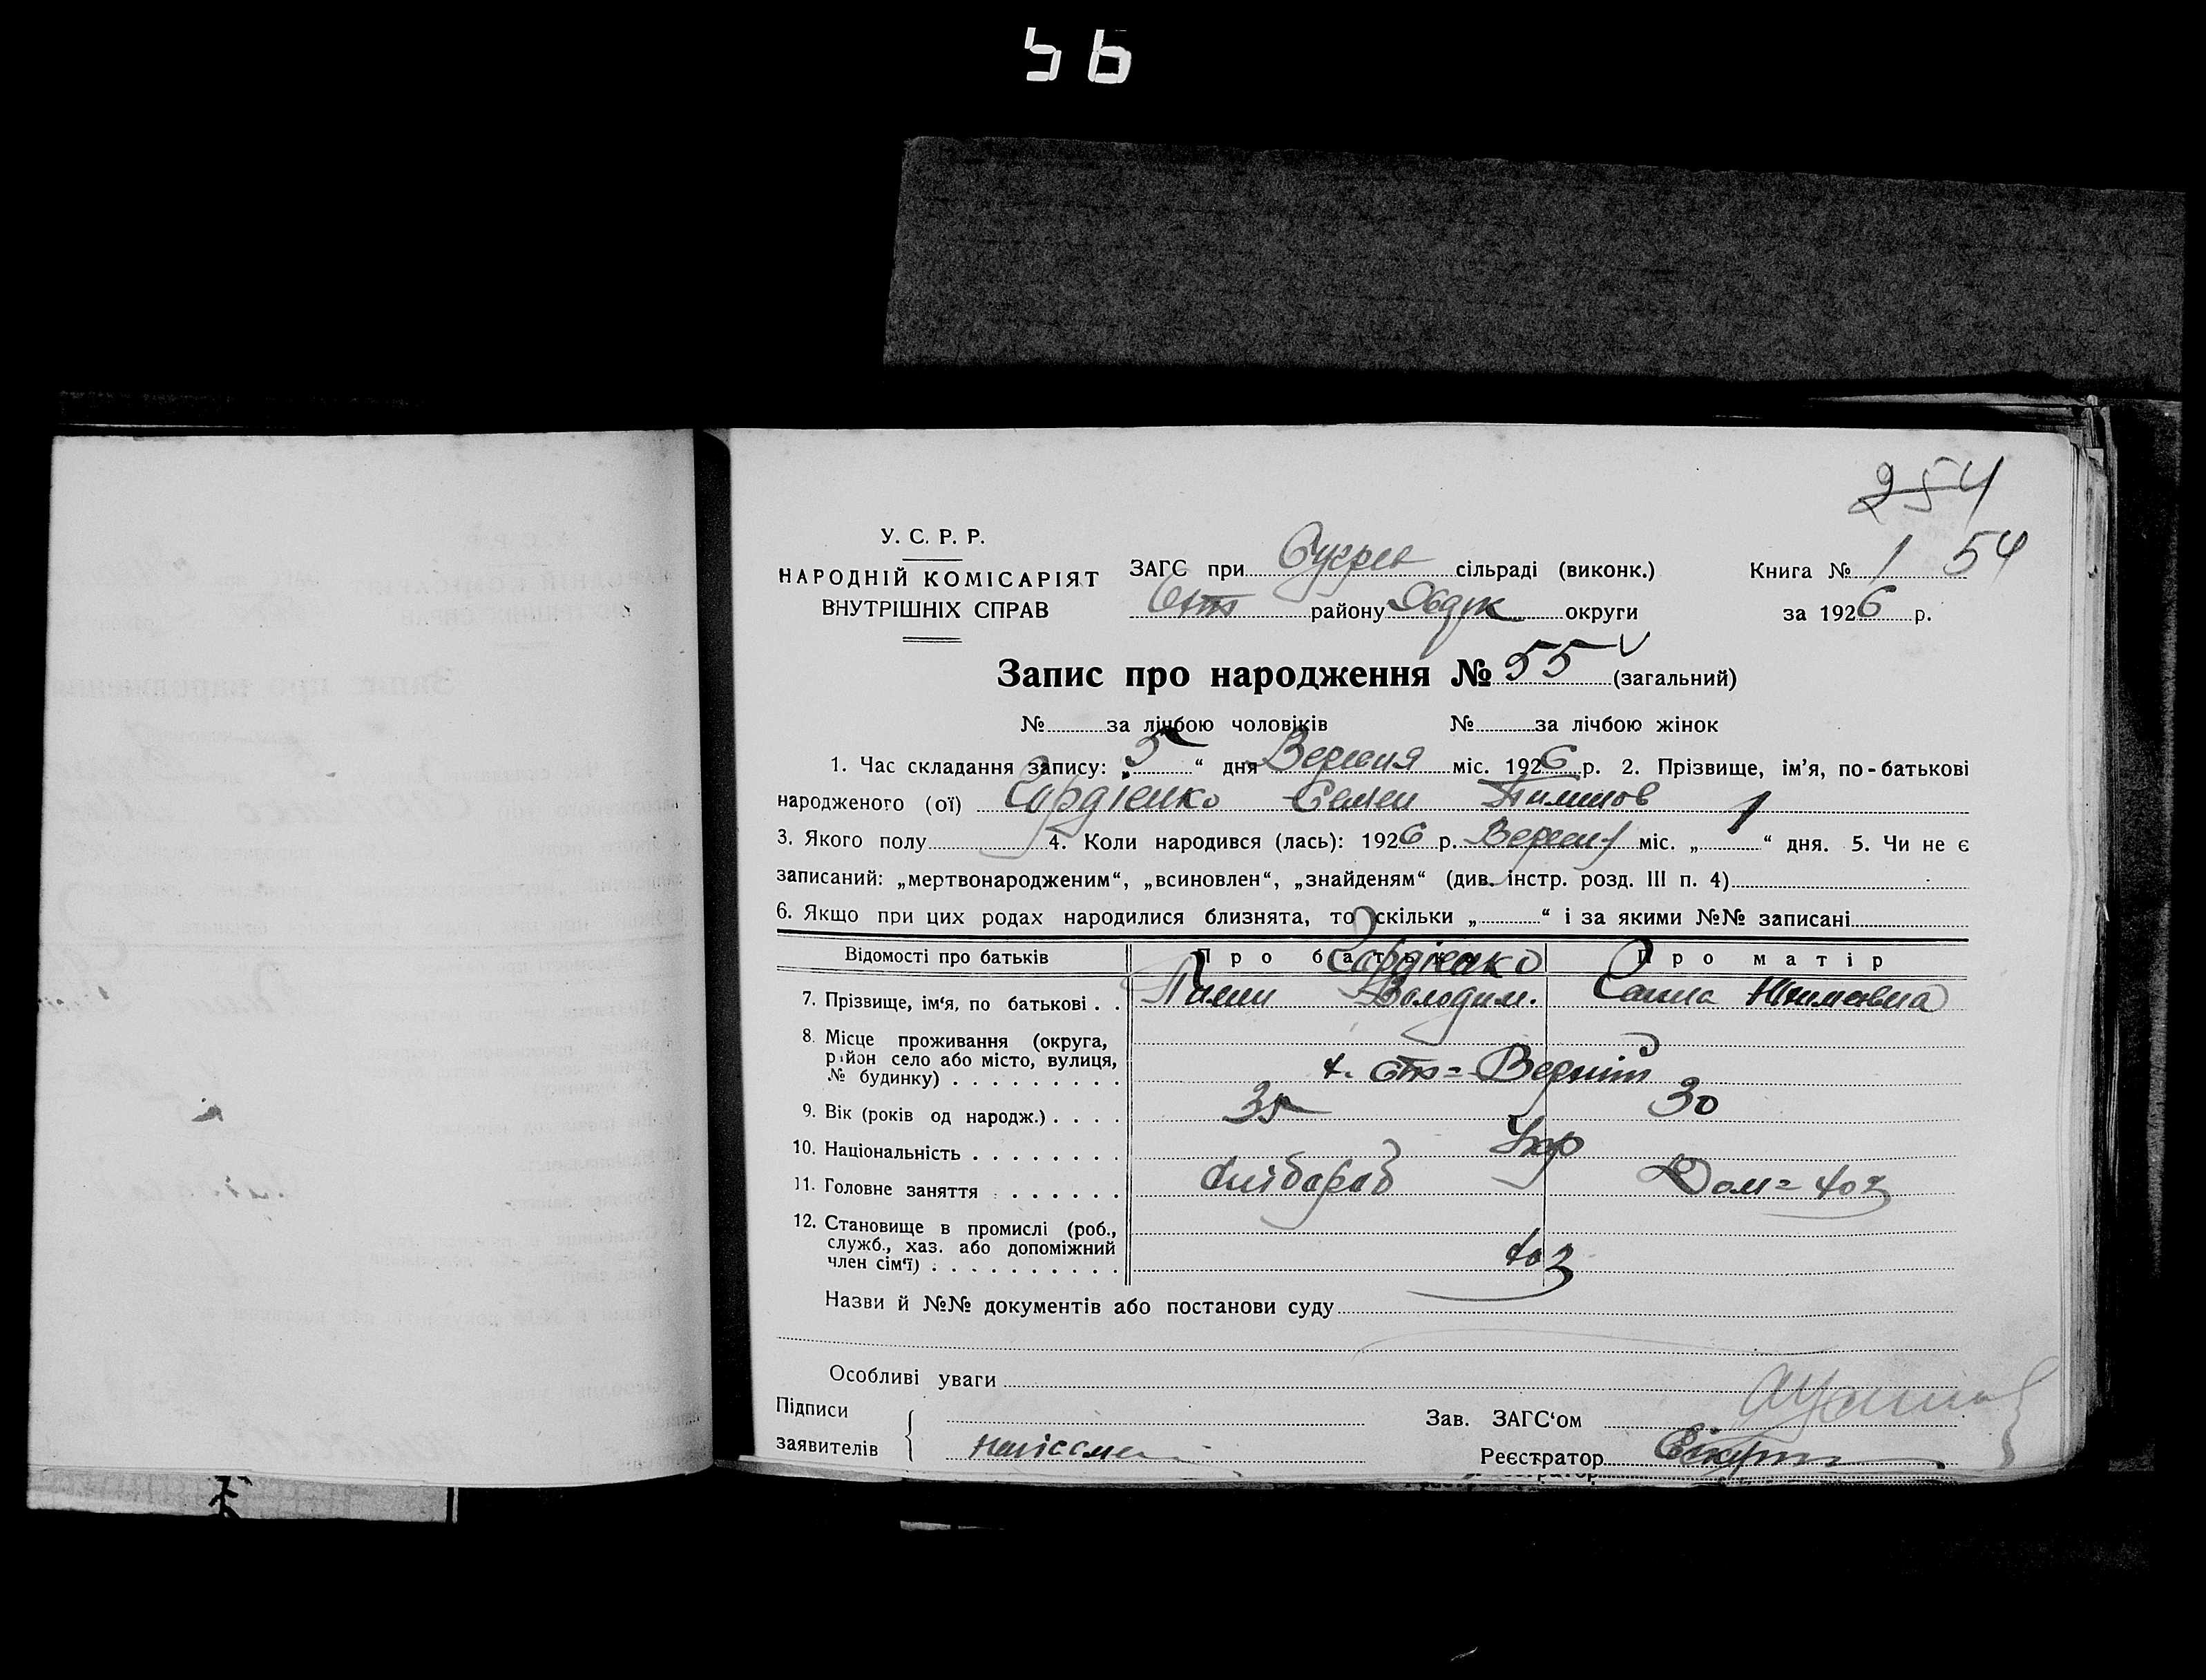 56
254
У. С. Р. Р.
НАРОДНІЙ КОМІСАРІЯТ
ВНУТРІШНІХ СПРАВ
ЗАГС при сільраді (виконк.)
району округи
Книга № 1 54
за 1926 р.
Запис про народження № 55 (загальний)
№ за лічбою чоловіків № за лічбою жінок
1. Час складання запису: „ 5 “ дня Вересня міс. 1926 р. 2. Прізвище, ім'я, по-батькові
народженого (ої) Гордіенко Семен Пилипов
3. Якого полу 4. Коли народився (лась): 1926 р. Вересня міс. „ 1 “ дня. 5. Чи не є
записаний: „мертвонародженим“, „всиновлен“, „знайденям“ (див. інстр. розд. III п. 4)
6. Якщо при цих родах народилися близнята, то скільки „ “ і за якими №№ записані
Відомості про батьків Про батька Про матір
Гордіенко
7. Прізвище, ім'я, по батькові . . Пилип Володим.
8. Місце проживання (округа,
район село або місто, вулиця,
№ будинку) . . . . . . . . .
9. Вік (років од народж.) . . . . 35 30
10. Національність . . . . . . . . Укр
11. Головне заняття . . . . . . . Хлібороб Дом= хоз
12. Становище в промислі (роб.,
служб., хаз. або допоміжний
член сім'ї) . . . . . . . . . . хоз
Назви й №№ документів або постанови суду
Особливі уваги
Підписи
заявителів
Зав. ЗАГС'ом
Реєстратор